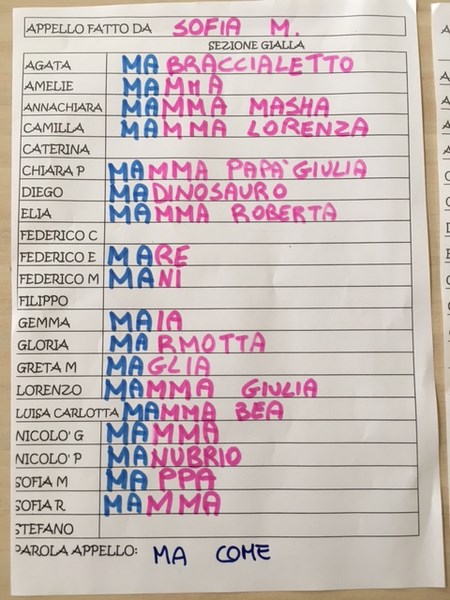 APPELLO FATTO DA SOFIA M.
SEZIONE GIALLA
AGATA MA BRACCIALETTO
AMELIE MAMMA
ANNACHIARA MAMMA MASHA
CAMILLA MAMMA LORENZA
CATERINA
CHIARA P MAMMA PAPA' GIULIA
DIEGO MADINOSAURO
ELIA MAMMA ROBERTA
FEDERICO C
FEDERICO E MARE
FEDERICO M MANI
FILIPPO
GEMMA MAIA
GLORIA MARMOTTA
GRETA M MAGLIA
LORENZO MAMMA GIULIA
LUISA CARLOTTA MAMMA BEA
NICOLO' G MAMMA
NICOLO' P MANUBRIO
SOFIA M MAPPA
SOFIA R MAMMA
STEFANO
PAROLA APPELLO: MA COME